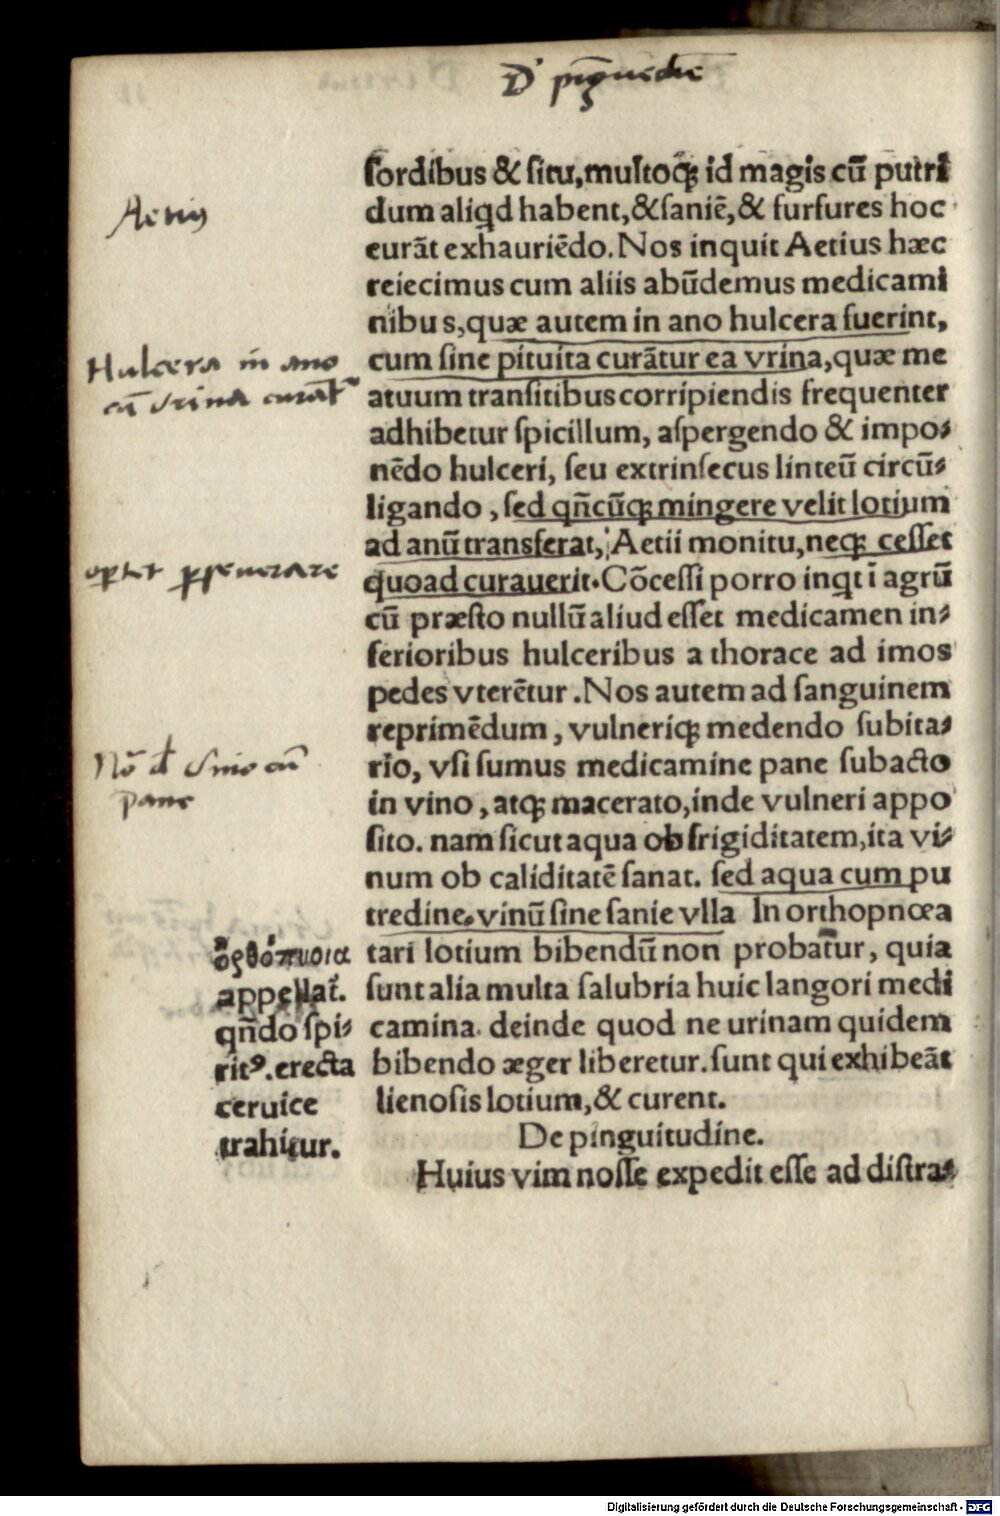 D' pīguedīe
ſordibus & ſitu,multoq̃ id magis cū putri
dum aliqd habent,&ſaniē,& furfures hoc
curāt exhauriēdo.Nos inquit Aetius hæc
reiecimus cum aliis abūdemus medicami
nibus,quæ autem in ano hulcera fuerint,
cum ſine pituita curātur ea vrina,quæ me
atuum tranſitibus corripiendis frequenter
adhibetur ſpicillum, aſpergendo & impo⸗
nēdo hulceri, ſeu extrinſecus linteū circū⸗
ligando , ſed qñcūq; mingere velit lotium
ad anū transferat, Aetii monitu,neq; ceſſet
quoad curauerit.Cōceſſi porro inqt ī agrū
cū præſto nullū aliud eſſet medicamen in⸗
ferioribus hulceribus a thorace ad imos
pedes vterētur.Nos autem ad ſanguinem
reprimēdum, vulneriq; medendo ſubita⸗
rio, vſi ſumus medicamine pane ſubacto
in vino, atq; macerato,inde vulneri appo
ſito. nam ſicut aqua ob frigiditatem,ita vi⸗
num ob caliditatē ſanat. ſed aqua cum pu
tredine.vinū ſine ſanie vlla In orthopnœa
tari lotium bibendū non probatur, quia
ſunt alia multa ſalubria huic langori medi
camina. deinde quod ne urinam quidem
bibendo æger liberetur.ſunt qui exhibeāt
lienoſis lotium,& curent.
De pinguitudine.
Huius vim noſſe expedit eſſe ad diſtra⸗
Aetius
Hulcera in ano
cū vrina curāt
oportet perſeuerare
Nō de vino cū
pane
ὀρθόπνοια
appellat̃.
qñdo ſpi⸗
ritꝰ.erecta
ceruice
trahitur.
Digitalisierung gefördert durch die Deutsche Forschungsgemeinschaft - DFG